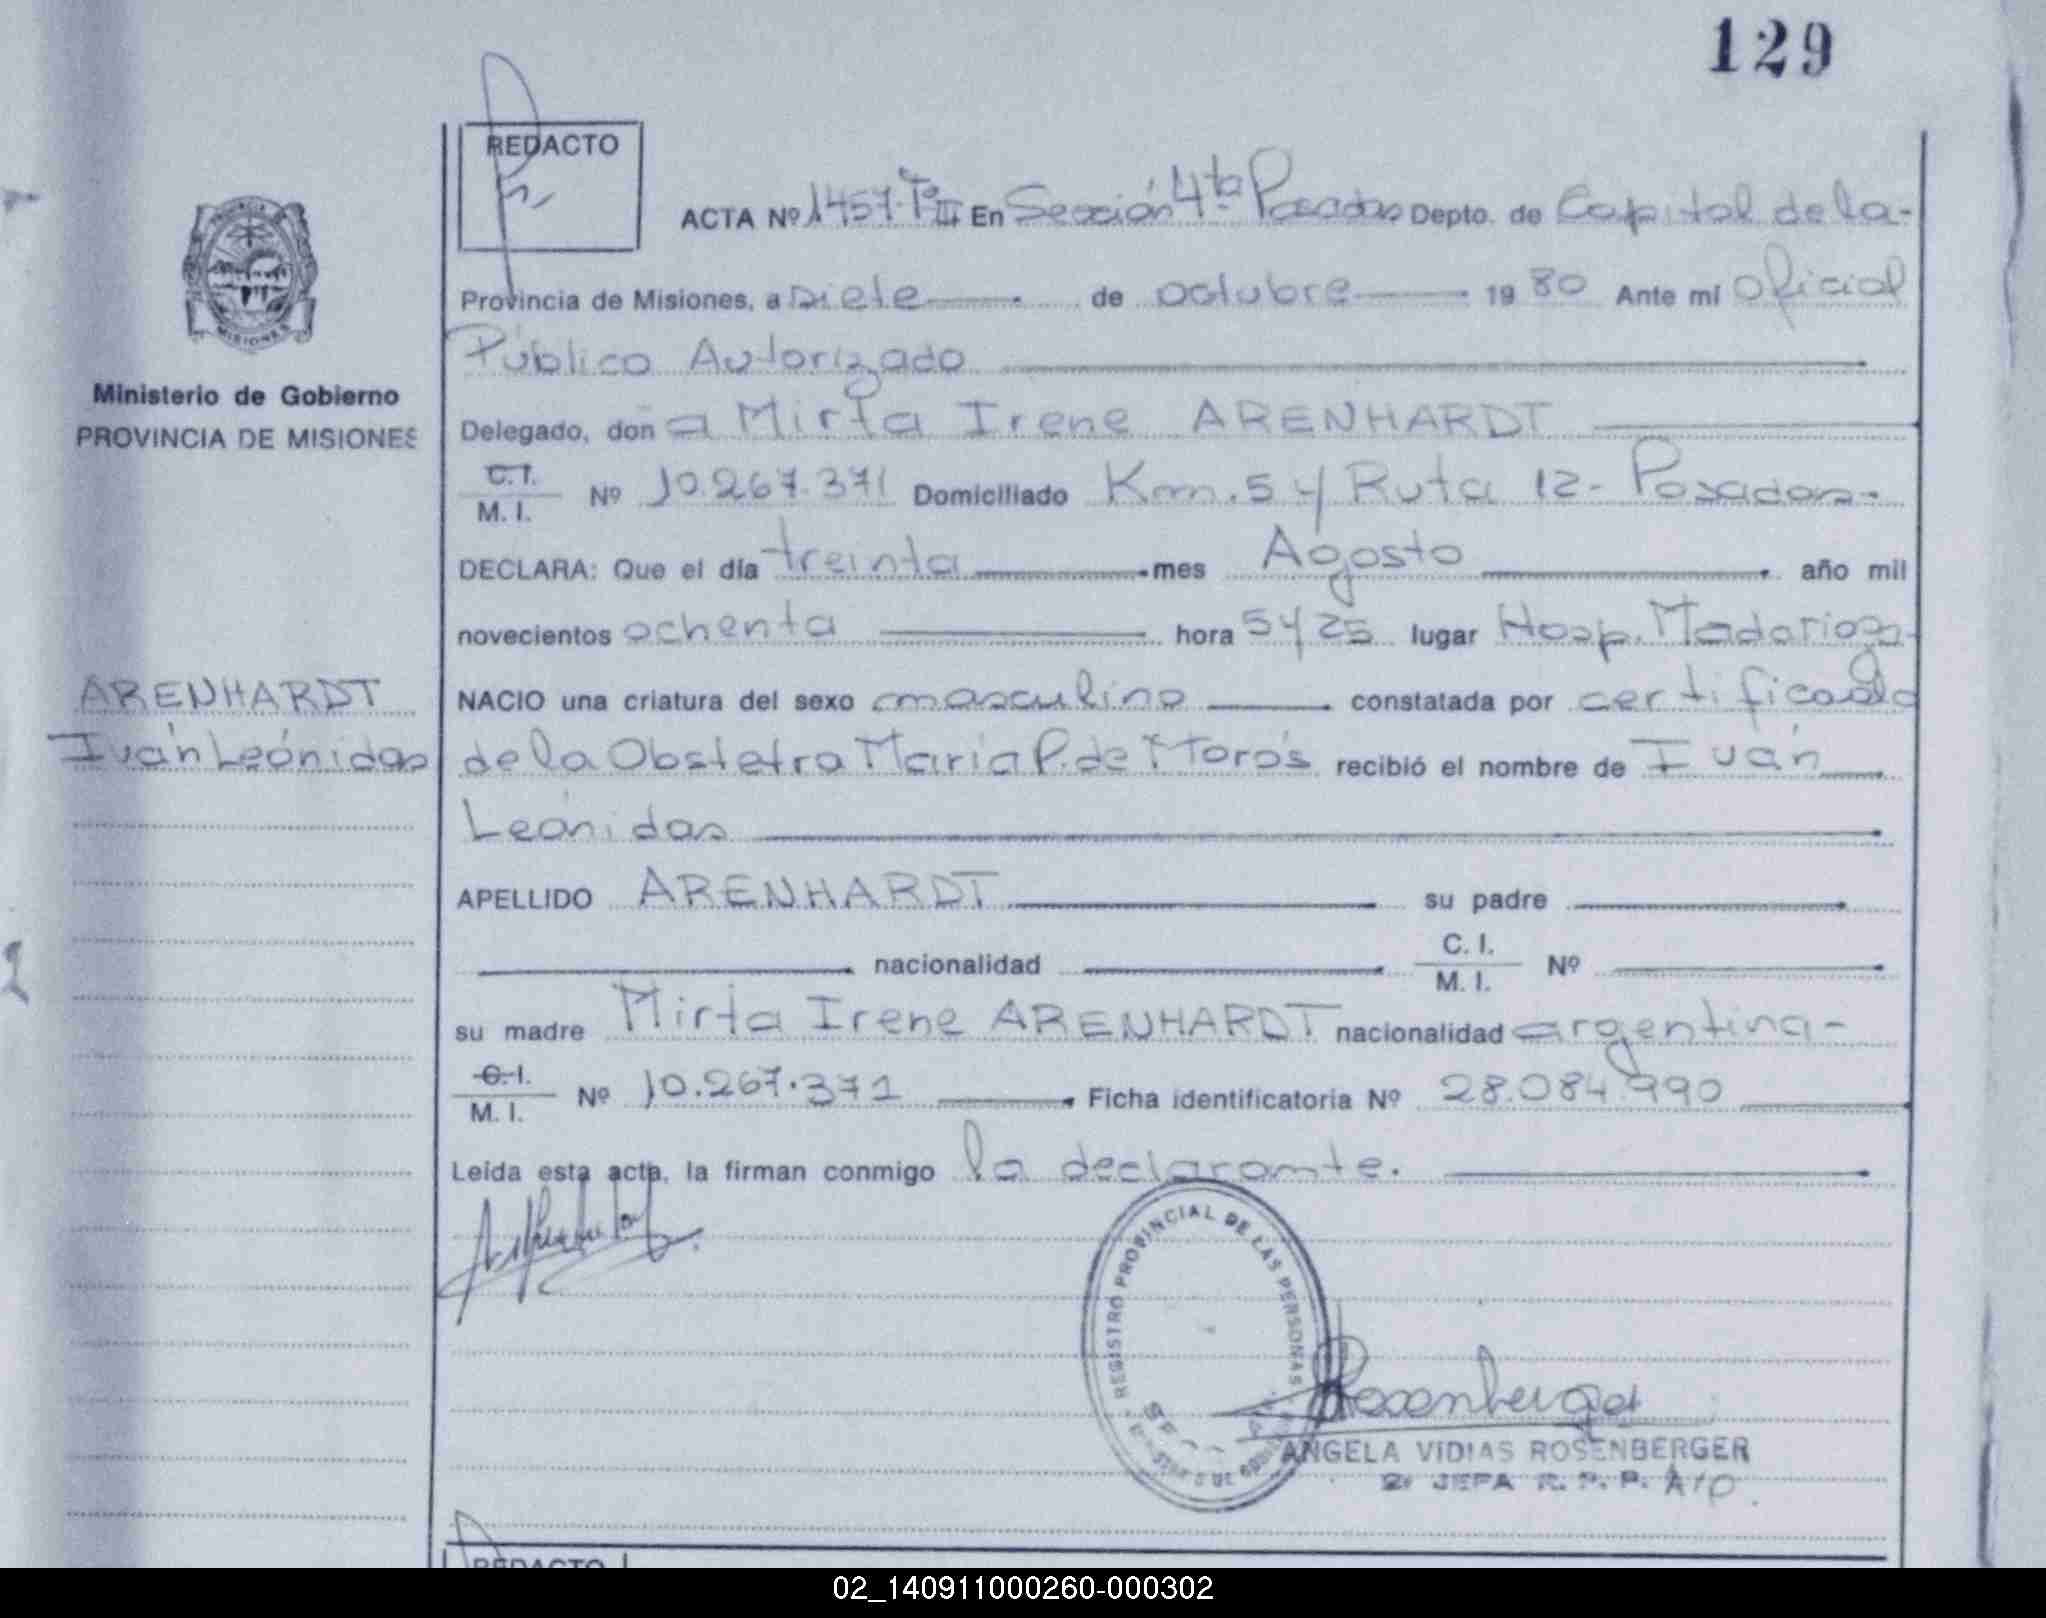 129
REDACTO
ACTA Nº 1457. Tº III En Sección 4ta Posadas Depto. de Capital de la-
Provincia de Misiones, a siete de octubre 1980 Ante mí Oficial
Público Autorizado
Delegado, doña Mirta Irene ARENHARDT
C.I. M.I. Nº 10.267.371 Domiciliado Km. 5 y Ruta 12- Posadas-
DECLARA: Que el día treinta mes Agosto año mil
novecientos ochenta hora 5 y 25 lugar Hosp. Madariaga-
NACIO una criatura del sexo masculino constatada por certificado
de la Obstetra María P. de Morós recibió el nombre de Iván
Leónidas
APELLIDO ARENHARDT su padre
nacionalidad C. I. M. I. Nº
su madre Mirta Irene ARENHARDT nacionalidad argentina-
C.I. M. I. Nº 10.267.371 Ficha identificatoria Nº 28.084.990
Leída esta acta, la firman conmigo la declarante.
REGISTRO PROVINCIAL DE LAS PERSONAS
Rosenberger
ANGELA VIDIAS ROSENBERGER
2º JEFA R. P. P. A/C.
REDACTO
MISIONES
Ministerio de Gobierno
PROVINCIA DE MISIONES
ARENHARDT
Iván Leónidas
02_140911000260-000302